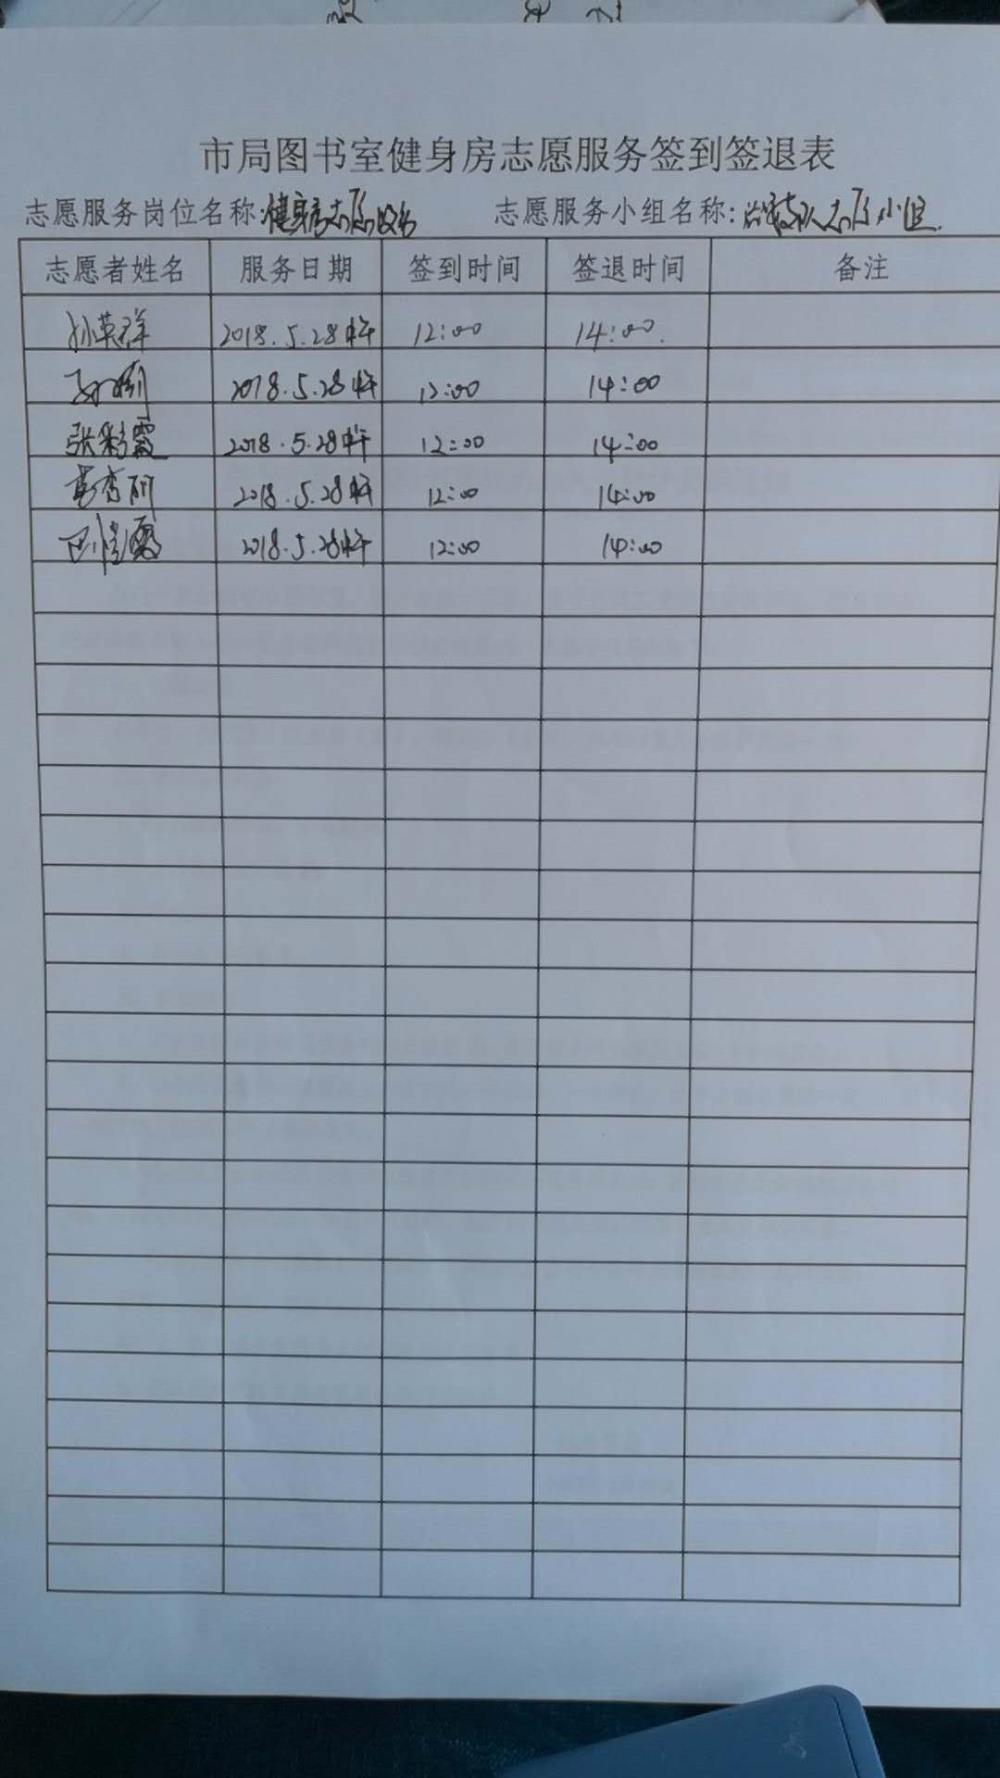 市局图书室健身房志愿服务签到签退表
志愿服务岗位名称:健身房志愿服务 志愿服务小组名称:志愿小组
志愿者姓名 服务日期 签到时间 签退时间 备注
孙英祥 2018.5.28中午 12:00 14:00
2018.5.28中午 12:00 14:00
张彩霞 2018.5.28中午 12:00 14:00
2018.5.28中午 12:00 14:00
2018.5.28中午 12:00 14:00